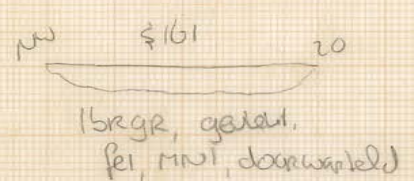 NW S161 ZO
lBRGR, gevlekt,
fe1, MN1, doorworteld